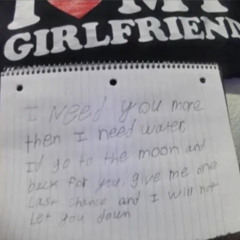 I ❤ MY
GIRLFRIEND
I Need you more
then I need water,
I'd go to the moon and
back for you, give me one
Last chance and I will not
Let you down